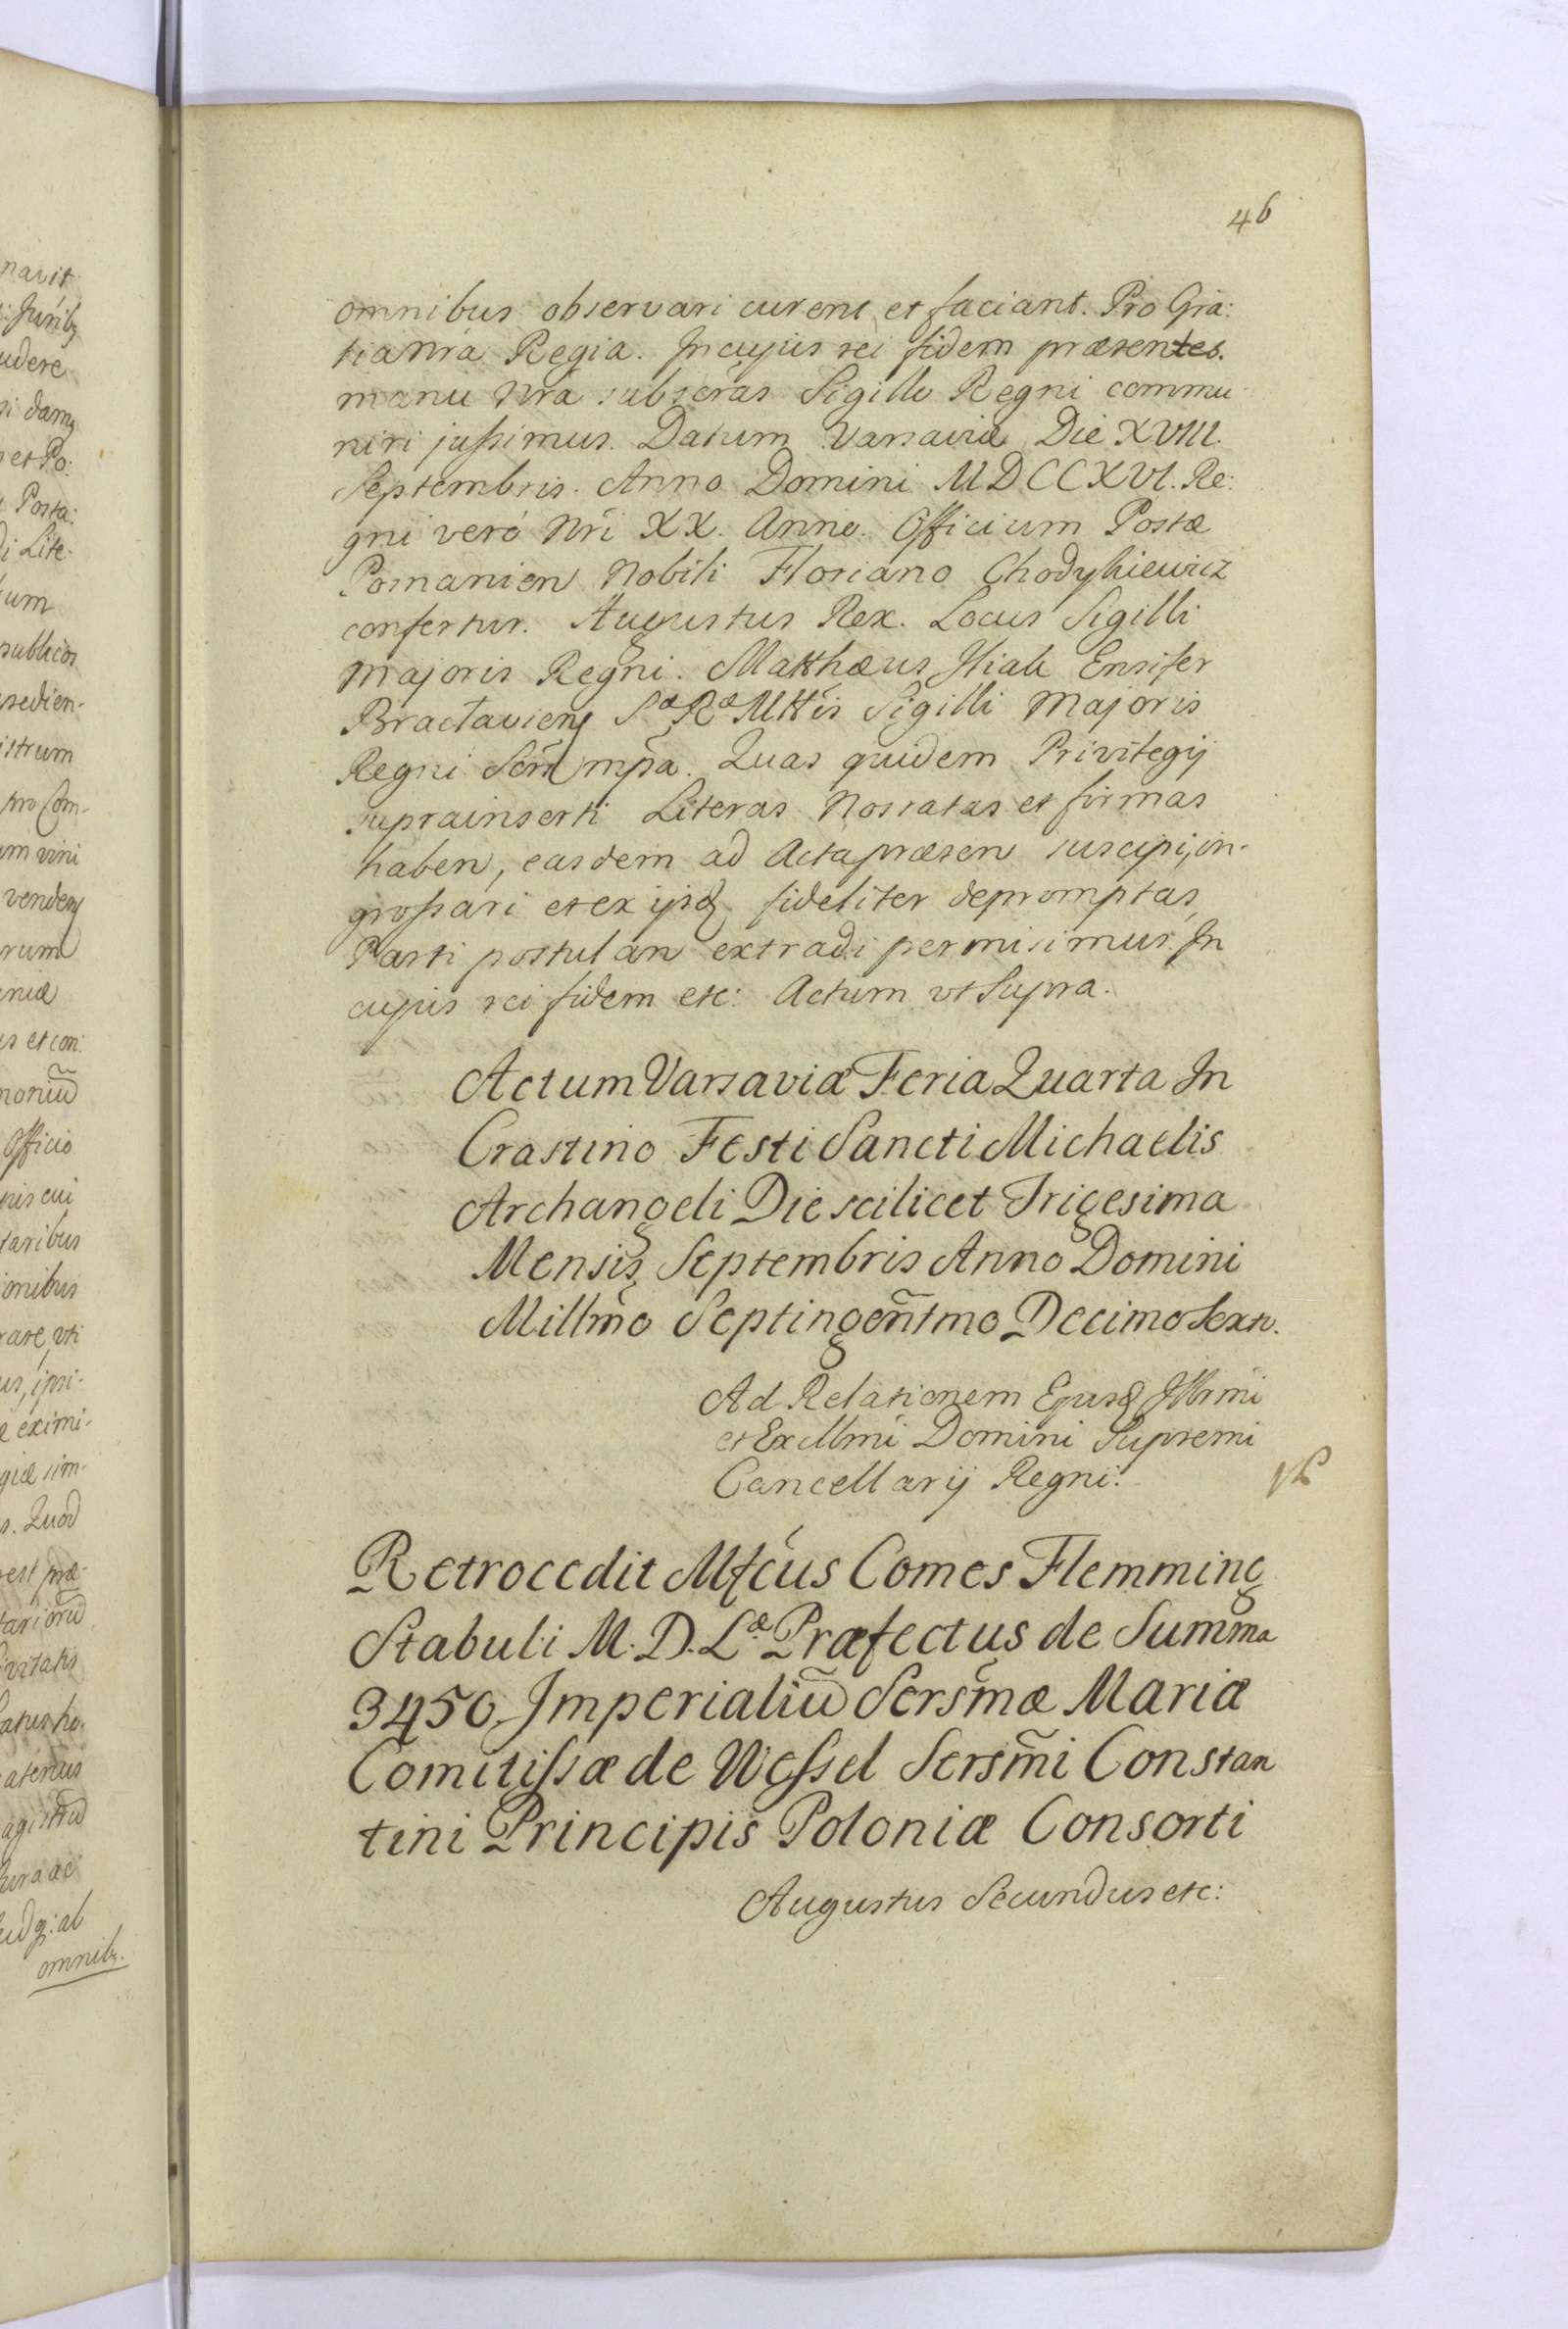 navit
Juribq
udere
si damq
et Po:
Posta:
di Lite-
um
publicos
sedien-
istrum
pro Com-
um vini
vendenq
rum
iniæ
us et con:
noriũ
Officio
nis cui
taribus
ionibus
rare, vti
us, ipsi-
e eximi-
giæ sim-
s. Quod
est præ-
tariorũ
ivitatis
atus ho:
atenus
agistrũ
Jura ac
ab
omnibq.
46
omnibus observari curent et faciant. Pro Gra:
tia Nrã Regia. In cujus rei fidem præsentes.
manu Nrã subscras Sigillo Regni commu-
niri jussimus. Datum Varsaviæ Die XVIII.
Septembris. Anno Domini MDCCXVI. Re:
gni verò Nri XX. Anno. Officium Postæ
Posnanien Nobili Floriano Chodykiewicz
confertur. Augustus Rex. Locus Sigilli
Majoris Regni. Matthæus Ensifer
Braclavienq Sæ Ræ Mttis Sigilli Majoris
Regni Scrũ mpã. Quas quidem Privilegij
suprainserti Literas Nos ratas et firmas
haben, easdem ad Acta præsen suscipi, in-
grossari et ex ijsdq fideliter depromptas,
Parti postulan extradi permisimus. In
cujus rei fidem etc: Actum vt Supra.
Actum Varsaviæ Feria Quarta In
Crastino Festi Sancti Michaelis
Archangeli Die scilicet Trigesima
Mensis Septembris Anno Domini
Millmõ Septingeñtmo Decimo Sexto.
Ad Relationem Ejusdq Illrmi
et Excllmi Domini Supremi
Cancellarij Regni.
Retrocedit Mfcus Comes Flemming
Stabuli M. D. Læ Præfectus de Summa
3450 Imperialiũ Sersmæ Mariæ
Comitissæ de Wessel Sersm̃i Constan
tini Principis Poloniæ Consorti
Augustus Secundus etc: